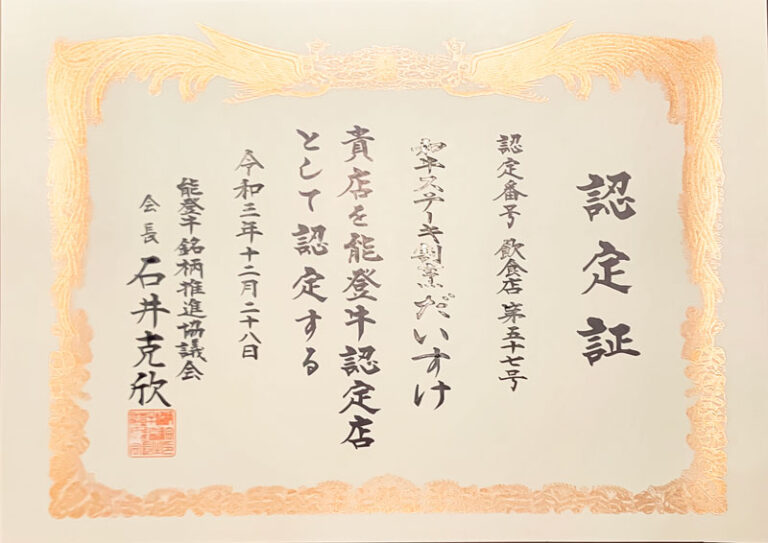 認定証
認定番号 飲食店 第五十七号
和牛ステーキ割烹だいすけ
貴店を能登牛認定店
として認定する
令和三年十二月二十八日
能登牛銘柄推進協議会
会長 石井克欣